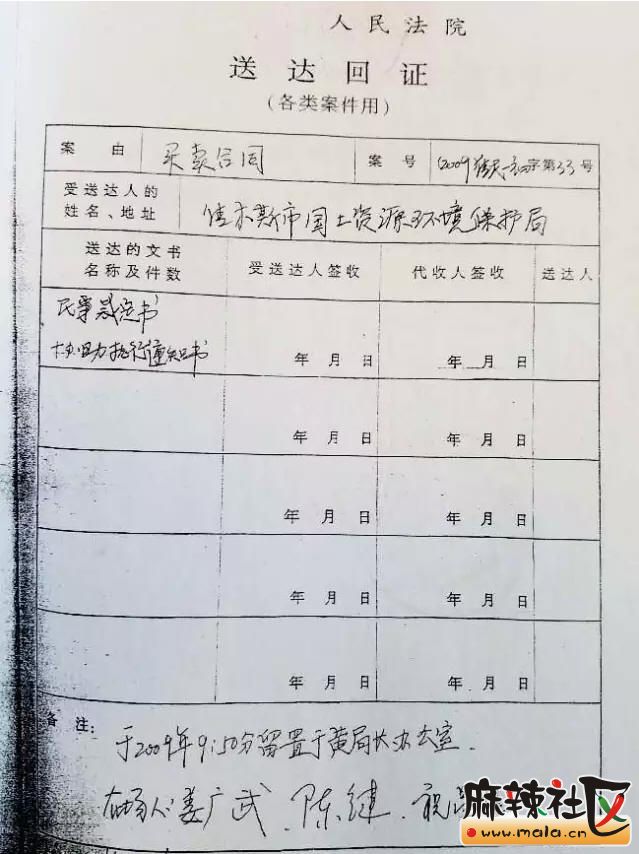 人民法院
送达回证
（各类案件用）
案由 买卖合同 案号 (2009) 字第33号
受送达人的
姓名、地址 佳木斯市国土资源环境保护局
送达的文书
名称及件数 受送达人签收 代收人签收 送达人
民事裁定书
协助执行通知书 年 月 日 年 月 日
年 月 日 年 月 日
年 月 日 年 月 日
年 月 日 年 月 日
年 月 日 年 月 日
备注：
于2009年9:50分留置于黄局长办公室.
在场人:姜广武、陈健、祝
麻辣社区
www.mala.cn